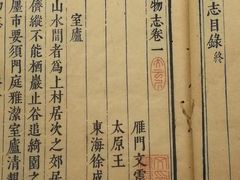 志目錄終
物志卷一
雁門文震
太原王
東海徐成
室廬
山水間者為上村居次之郊居
儕縱不能栖巖止谷追綺園之
廛市要須門庭雅潔室廬清靚